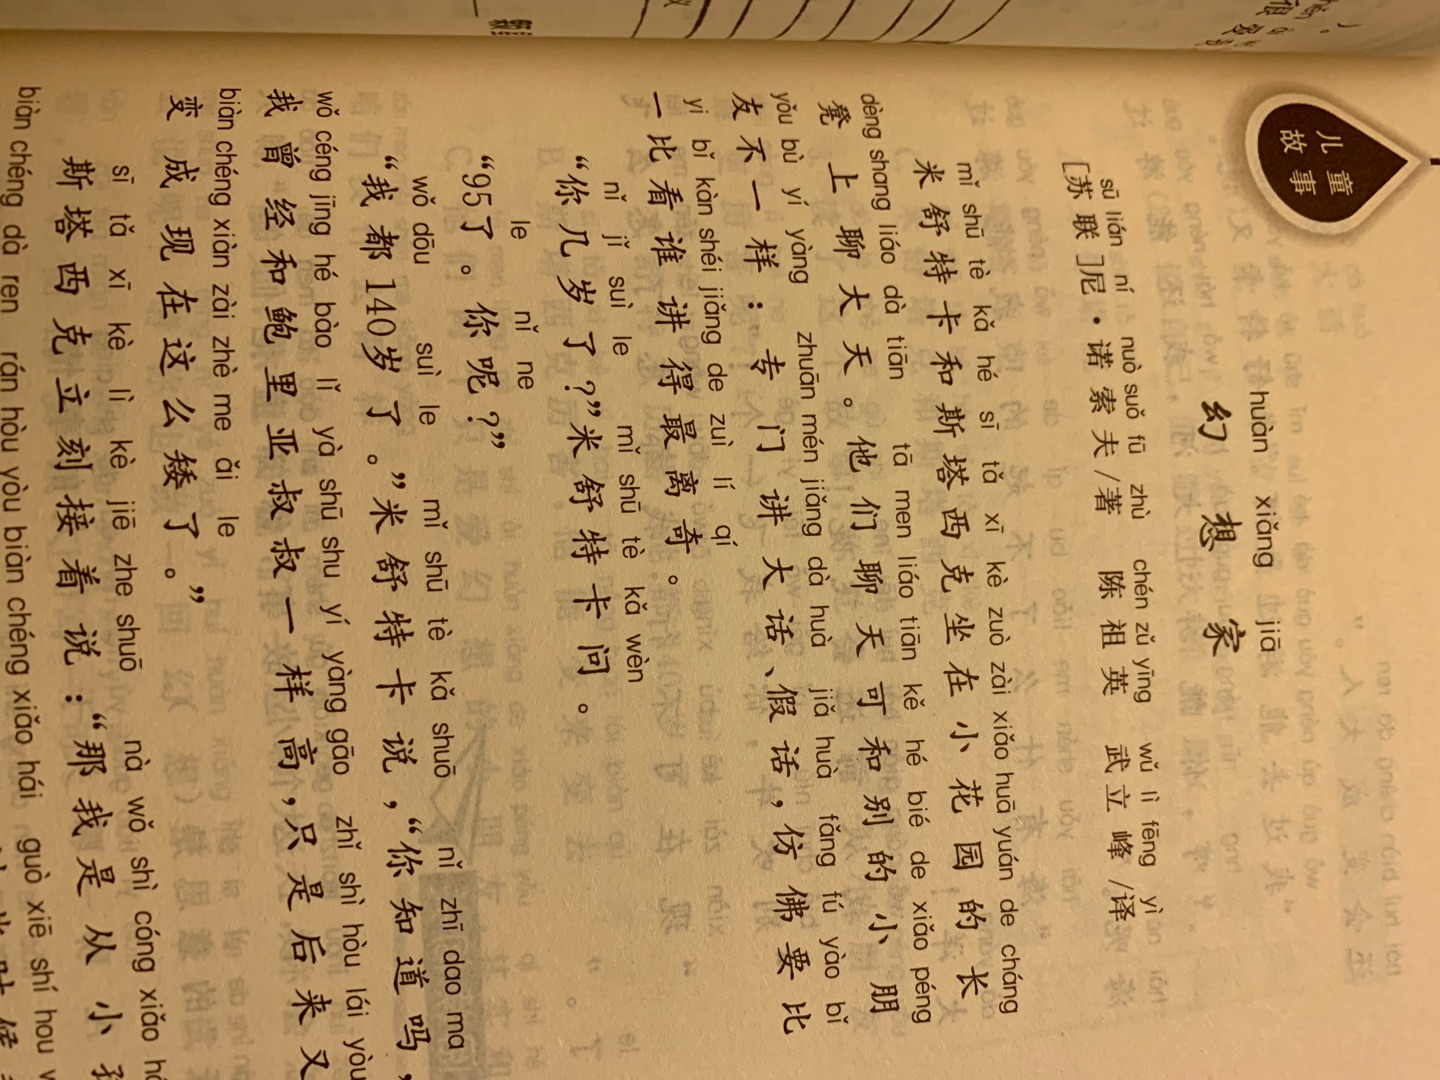 儿童
故事
huàn xiǎng jiā
幻想家
sū lián ní nuò suǒ fū zhù chén zǔ yīng wǔ lì fēng yì
[苏联]尼·诺索夫/著 陈祖英 武立峰/译
mǐ shū tè kǎ hé sī tǎ xī kè zuò zài xiǎo huā yuán de cháng
米舒特卡和斯塔西克坐在小花园的长
dèng shang liáo dà tiān tā men liáo tiān kě hé bié de xiǎo péng
凳上聊大天。他们聊天可和别的小朋
yǒu bù yí yàng zhuān mén jiǎng dà huà jiǎ huà fǎng fú yào bǐ
友不一样：专门讲大话、假话，仿佛要比
yi bǐ kàn shéi jiǎng de zuì lí qí
一比看谁讲得最离奇。
nǐ jǐ suì le mǐ shū tè kǎ wèn
“你几岁了？”米舒特卡问。
le nǐ ne
“95了。你呢？”
wǒ dōu suì le mǐ shū tè kǎ shuō nǐ zhī dao ma
“我都140岁了。”米舒特卡说，“你知道吗，
wǒ céng jīng hé bào lǐ yà shū shu yí yàng gāo zhǐ shì hòu lái yòu
我曾经和鲍里亚叔叔一样高，只是后来又
biàn chéng xiàn zài zhè me ǎi le
变成现在这么矮了。”
sī tǎ xī kè lì kè jiē zhe shuō nà wǒ shì cóng xiǎo
斯塔西克立刻接着说：“那我是从小
biàn chéng dà ren rán hòu yòu biàn chéng xiǎo hái guò xiē shí hou